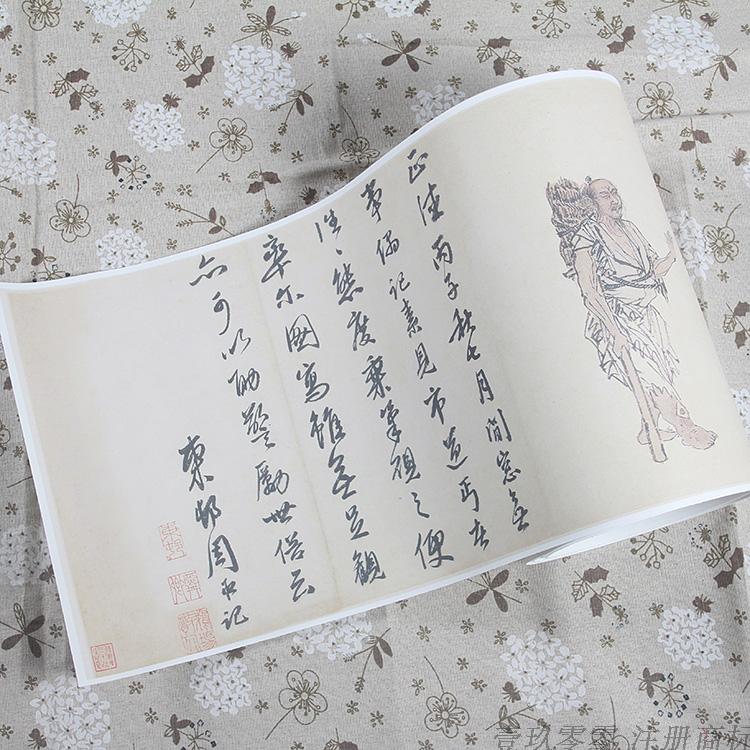 正德丙子秋七月閒窓無
事偶記素見市道丐者
往々態度乗筆硯之便
率尔圖寫雖無足觀
亦可以助警勵世俗云
東邨周臣記
壹玖零零 注册商标